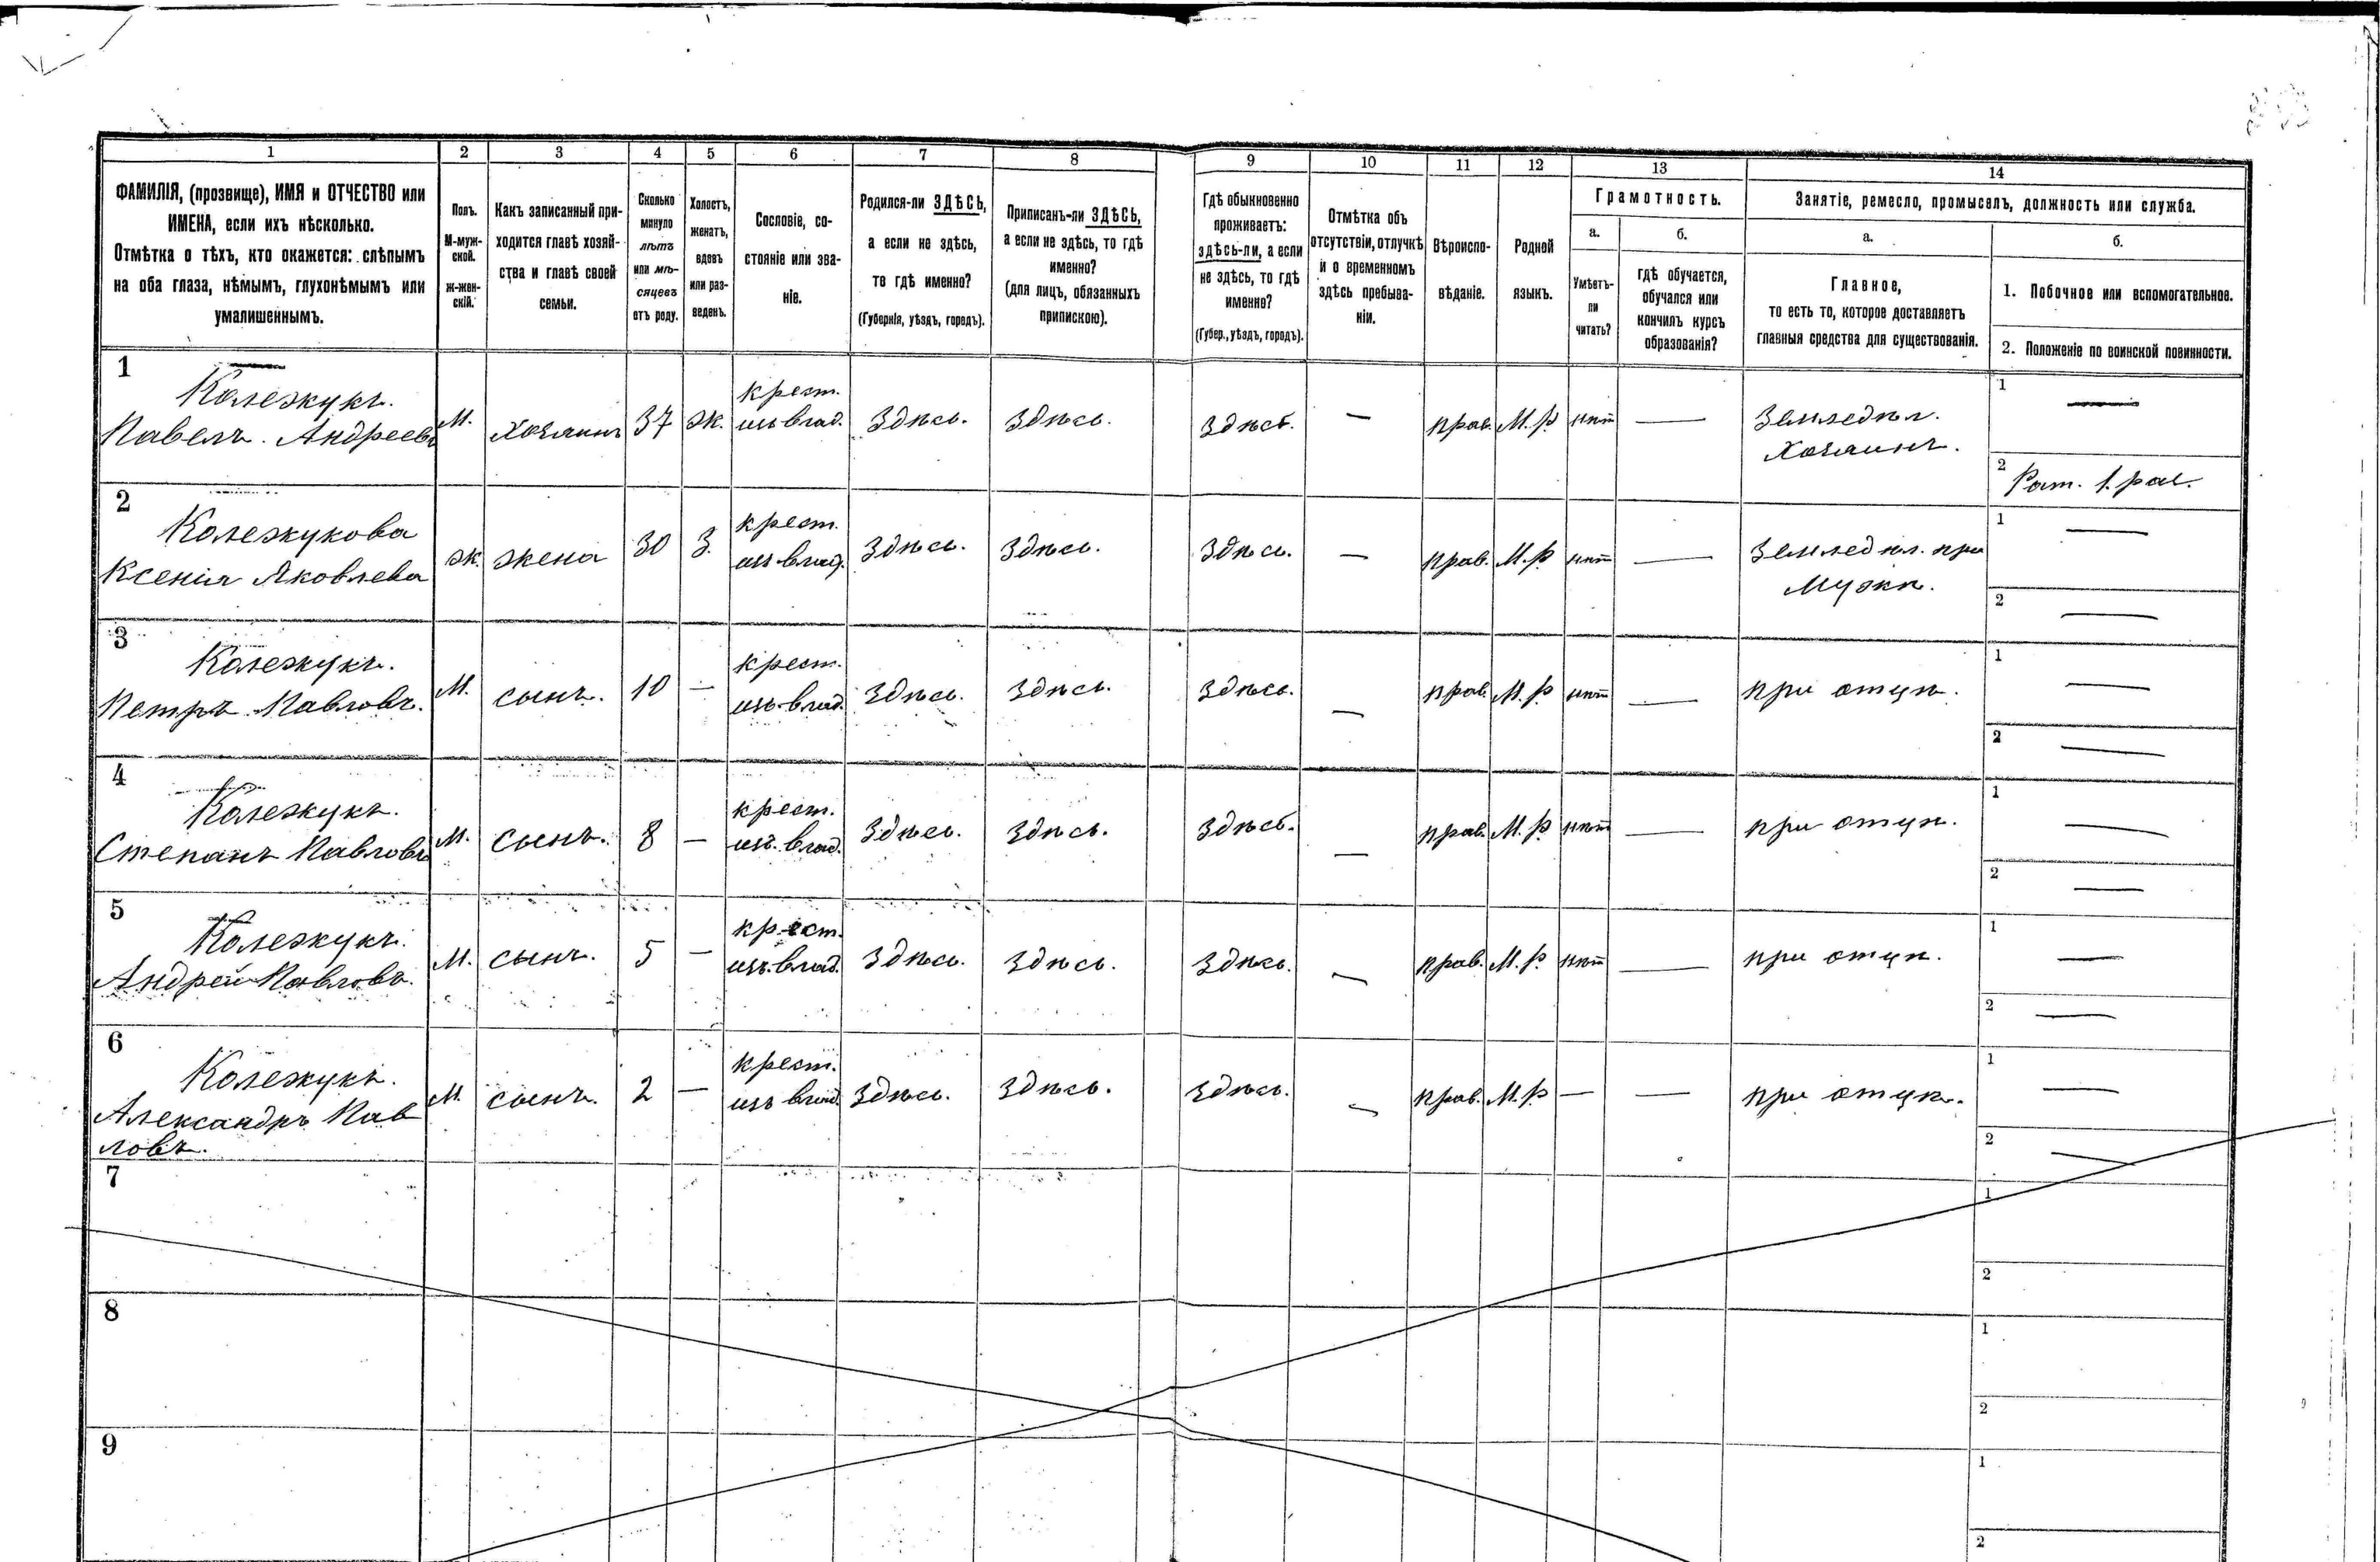 1 2 3 4 5 6 7 8 9 10 11 12 13 14
ФАМИЛІЯ, (прозвище), ИМЯ и ОТЧЕСТВО или
ИМЕНА, если ихъ нѣсколько.
Отмѣтка о тѣхъ, кто окажется: слѣпымъ
на оба глаза, нѣмымъ, глухонѣмымъ или
умалишеннымъ.
Полъ.
М-муж-
ской.
ж-жен-
скій.
Какъ записанный при-
ходится главѣ хозяй-
ства и главѣ своей
семьи.
Сколько
минуло
лѣтъ
или мѣ-
сяцевъ
отъ роду.
Холостъ,
женатъ,
вдовъ
или раз-
веденъ.
Сословіе, со-
стояніе или зва-
ніе.
Родился-ли ЗДѢСЬ,
а если не здѣсь,
то гдѣ именно?
(Губернія, уѣздъ, городъ).
Приписанъ-ли ЗДѢСЬ,
а если не здѣсь, то гдѣ
именно?
(для лицъ, обязанныхъ
припискою).
Гдѣ обыкновенно
проживаетъ:
здѣсь-ли, а если
не здѣсь, то гдѣ
именно?
(Губер., уѣздъ, городъ).
Отмѣтка объ
отсутствіи, отлучкѣ
и о временномъ
здѣсь пребыва-
ніи.
Вѣроиспо-
вѣданіе.
Родной
языкъ.
Грамотность.
а.
Умѣетъ-
ли
читать?
б.
гдѣ обучается,
обучался или
кончилъ курсъ
образованія?
Занятіе, ремесло, промыселъ, должность или служба.
а.
Главное,
то есть то, которое доставляетъ
главныя средства для существованія.
б.
1. Побочное или вспомогательное.
2. Положеніе по воинской повинности.
1
Колежукъ.
Павелъ. Андреевъ
М. Хозяинъ 37 ж. крест.
изъ влад. Здѣсь. Здѣсь. Здѣсь. — прав. М.р. нѣт — Земледѣл.
Хозяинъ.
1 —
2 Рат. 1. раз.
2
Колежукова
Ксенія Яковлева
ж. жена 30 З. крест.
изъ влад. Здѣсь. Здѣсь. Здѣсь. — прав. М.р нѣт — Земледѣл. при
Мужѣ.
1 —
2 —
3
Колежукъ.
Петръ Павловъ.
М. сынъ. 10 — крест.
изъ влад. Здѣсь. Здѣсь. Здѣсь. — прав. М.р нѣт — при отцѣ.
1 —
2 —
4
Колежукъ.
Степанъ Павловъ
М. сынъ. 8 — крест.
изъ. влад. Здѣсь. Здѣсь. Здѣсь. — прав. М.р нѣт — при отцѣ.
1 —
2 —
5
Колежукъ.
Андрей Павловъ.
М. сынъ. 5 — крест.
изъ. влад. Здѣсь. Здѣсь. Здѣсь. — прав. М.р. нѣт — при отцѣ.
1 —
2 —
6
Колежукъ.
Александръ Пав
ловъ.
М. сынъ. 2 — крест.
изъ влад. Здѣсь. Здѣсь. Здѣсь. — прав. М.р — — при отцѣ.
1 —
2 —
7
1
2
8
1
2
9
1
2